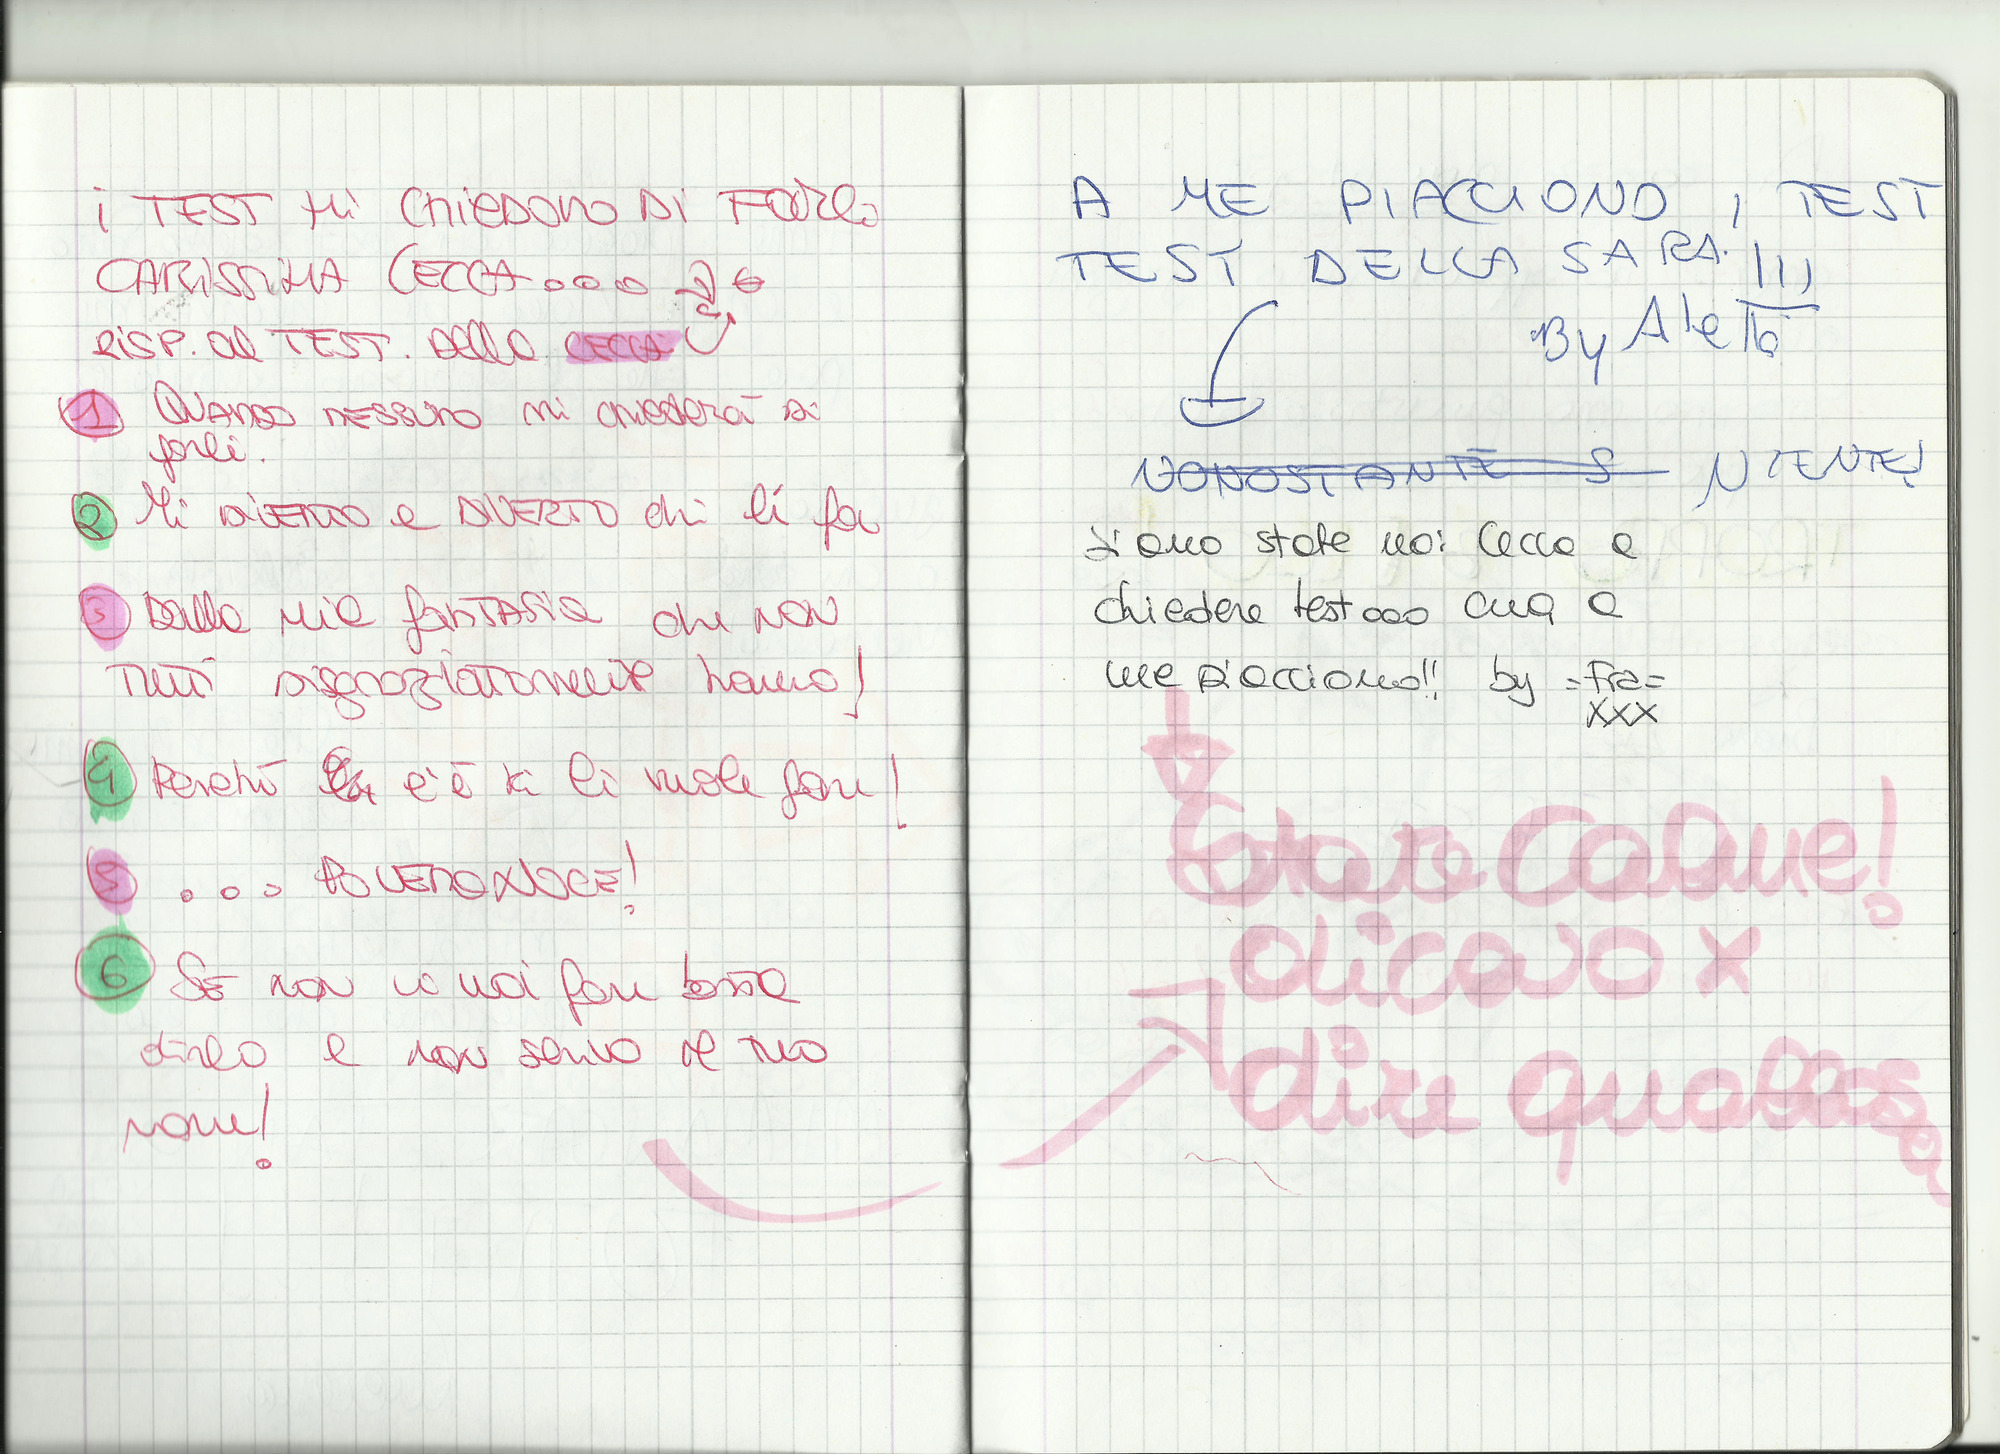 i TEST Mi CHIEDONO Di FARLO
CARISSIMA CECCA...
RISP. al TEST. DELLA CECCA
1 QUANDO NESSUNO mi chiederà di
farli.
2 Mi DIVERTO e DIVERTO chi li fa
3 Dalla mia fanTASia che NON
TUTTI disgraziatamente hanno!
4 Perchè c'è ki li vuole fare!
5 ... POVERO NOCE!
6 SE non li vuoi fare basta
dirlo e non scrivo il tuo
nome!
A ME PIACCIONO i TEST
TEST DELLA SARA. !!!
By Ale
NONOSTANTE S NIENTE!
siamo state noi Cecca a
chiedere test... a
me piacciono!! by =Fra=
XXX
State Calme!
dicevo x
dire qualcosa